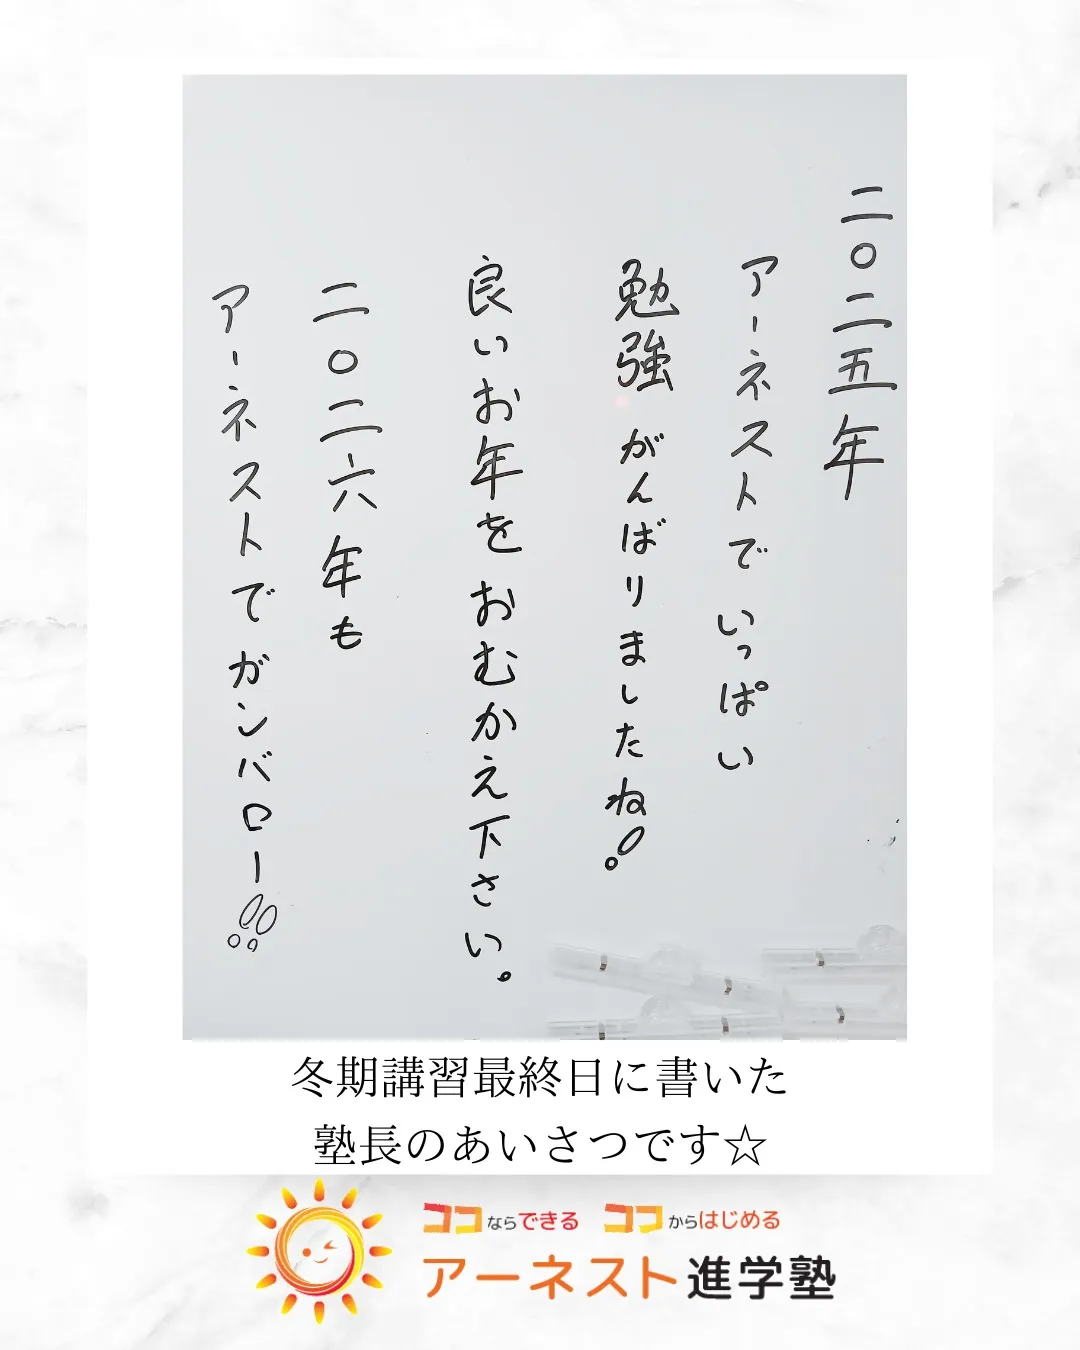 二〇二五年
アーネストでいっぱい
勉強がんばりましたね!
良いお年をおむかえ下さい。
二〇二六年も
アーネストでガンバロー!!
冬期講習最終日に書いた
塾長のあいさつです☆
ココならできる ココからはじめる
アーネスト進学塾